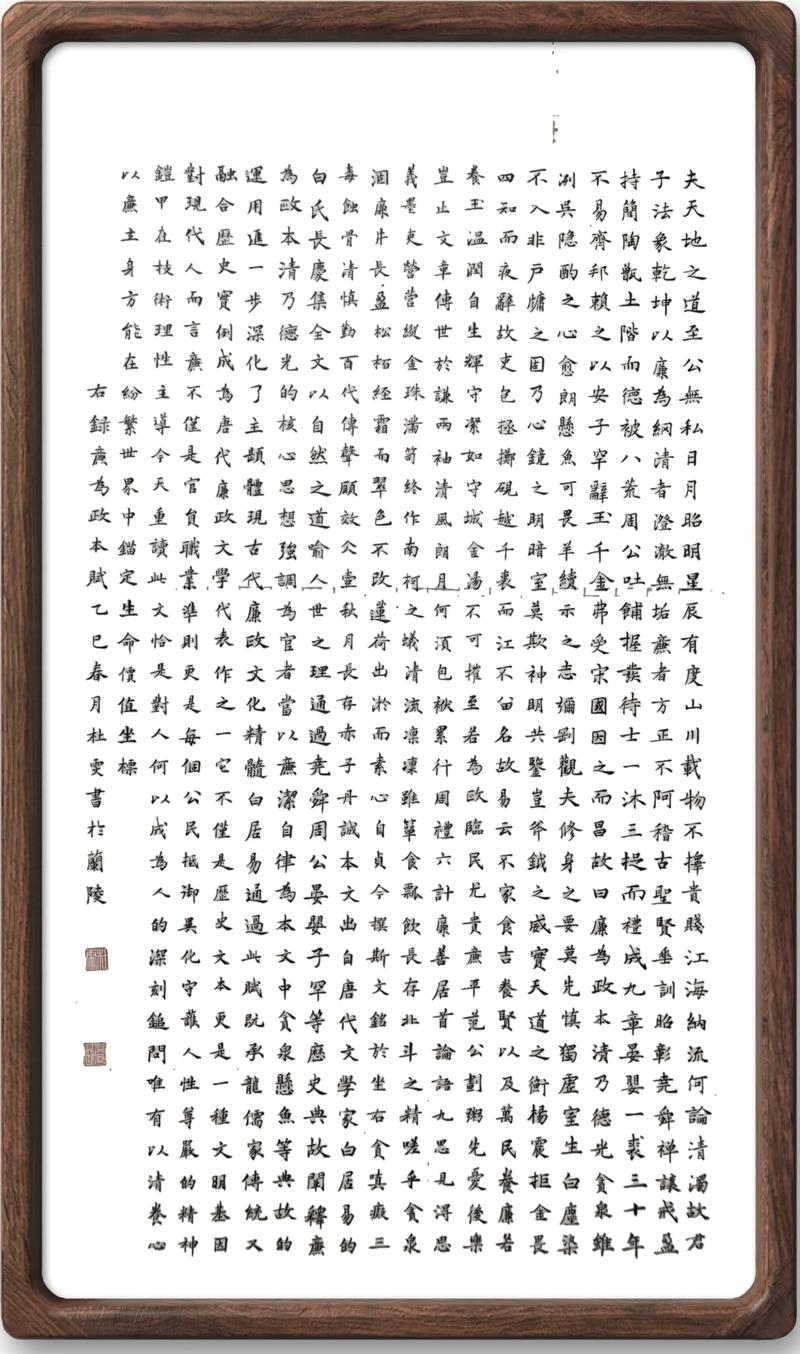 夫天地之道至公無私日月昭明星辰有度山川載物不擇貴賤江海納流何論清濁故君
子法象乾坤以廉為綱清者澄澈無垢廉者方正不阿稽古聖賢垂訓昭彰堯舜禅讓戒盈
持簡陶甎土階而德被八荒周公吐餔握發待士一沐三捉而禮成九章晏嬰一裘三十年
不易齊邦賴之以安子罕辭玉千金弗受宋國因之而昌故曰廉為政本清乃德光貪泉雖
冽吳隐酌之心愈朗懸魚可畏羊續示之志彌剛觀夫修身之要莫先慎獨虛室生白塵染
不入非戶牖之固乃心鏡之明暗室莫欺神明共鑒豈斧鉞之威實天道之衡楊震拒金畏
四知而夜辭故吏包拯擲硯越千裘而江不留名故易云不家食吉養賢以及萬民養廉若
養玉溫潤自生輝守潔如守城金湯不可摧至若為政臨民尤貴廉平范公劃粥先憂後樂
豈止文章傳世於謙兩袖清風朗月何須包袱累行周禮六計廉善居首論語九思見得思
義墨吏營營縱金珠滿笥終作南柯之蟻清流凛凛雖簞食瓢飲長存北斗之精嗟乎貪泉
涸廉井長盈松栢經霜而翠色不改蓮荷出淤而素心自貞今撰斯文銘於坐右貪嗔癡三
毒蝕骨清慎勤百代傳聲願效仌壺秋月長存赤子丹誠本文出自唐代文學家白居易的
白氏長慶集全文以自然之道喻人世之理通過堯舜周公晏嬰子罕等歷史典故闡釋廉
為政本清乃德光的核心思想強調為官者當以廉潔自律為本文中貪泉懸魚等典故的
運用進一步深化了主題體現古代廉政文化精髓白居易通過此賦既承龍儒家傳統又
融合歷史實例成為唐代廉政文學代表作之一它不僅是歷史文本更是一種文明基因
對現代人而言廉不僅是官員職業準則更是每個公民抵御異化守護人性尊嚴的精神
鎧甲在技術理性主導今天重讀此文恰是對人何以成為人的深刻鎚問唯有以清養心
以廉主身方能在紛繁世界中錨定生命價值坐標
右録廉為政本賦乙巳春月杜雯書於蘭陵